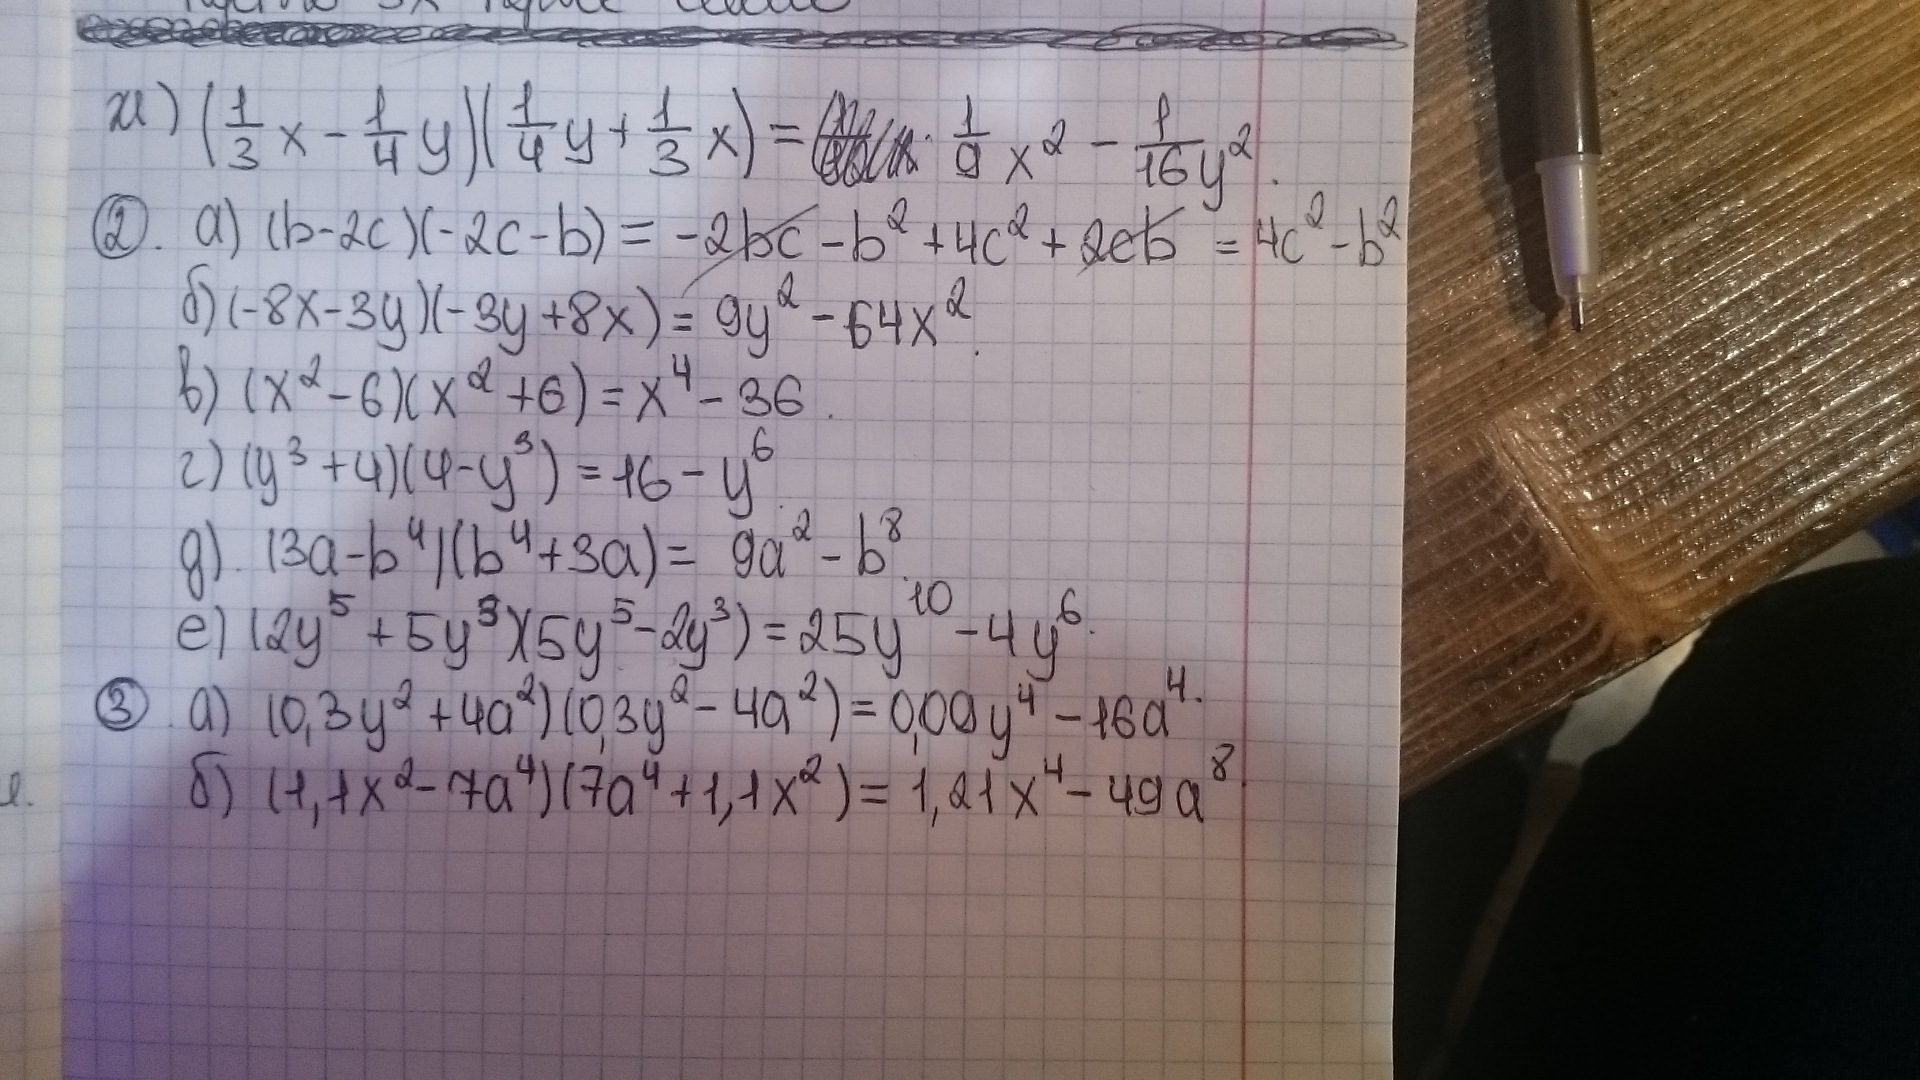 ж) (1/3 x - 1/4 y)(1/4 y + 1/3 x) = 1/9 x² - 1/16 y².
②. а) (b-2c)(-2c-b) = -2bc - b² + 4c² + 2cb = 4c² - b²
б) (-8x-3y)(-3y+8x) = 9y² - 64x².
в) (x²-6)(x²+6) = x⁴ - 36.
г) (y³+4)(4-y³) = 16 - y⁶.
д). (3a-b⁴)(b⁴+3a) = 9a² - b⁸.
е) (2y⁵+5y³)(5y⁵-2y³) = 25y¹⁰ - 4y⁶.
③. а) (0,3y²+4a²)(0,3y²-4a²) = 0,09y⁴ - 16a⁴.
б) (1,1x²-7a⁴)(7a⁴+1,1x²) = 1,21x⁴ - 49a⁸.